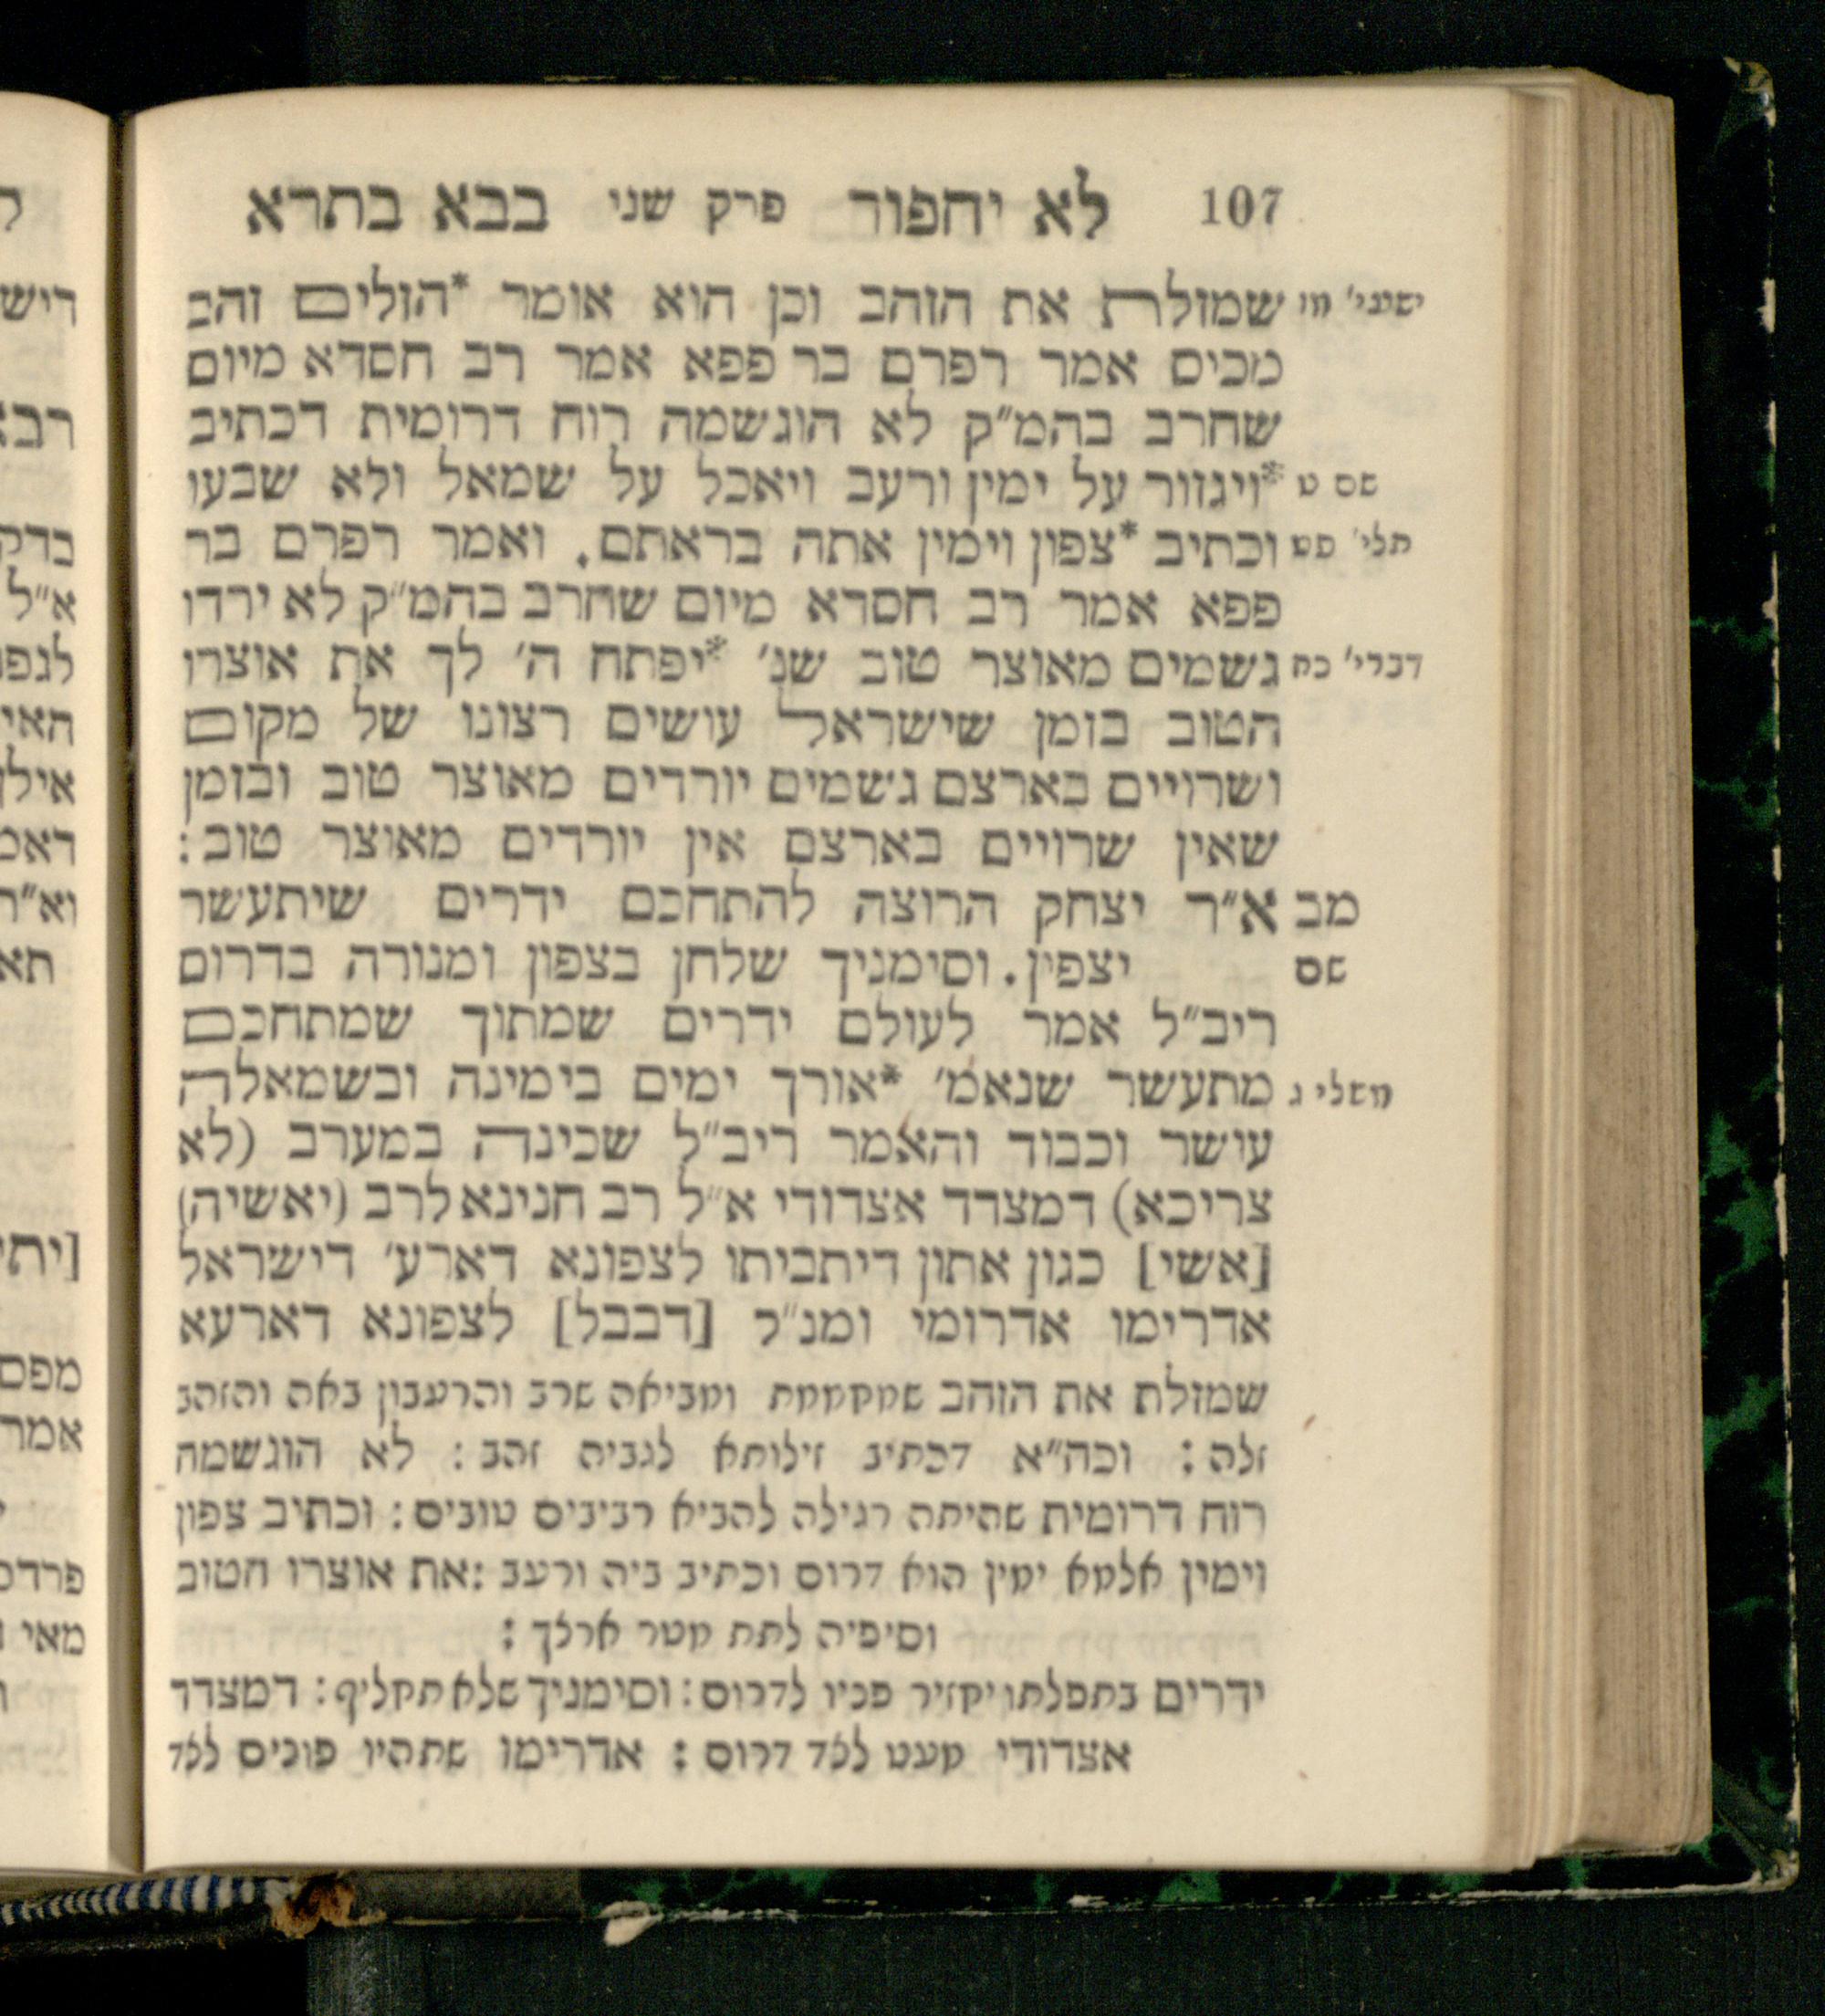 107 לא יחפור פרק שני בבא בתרא
ישעי' מו שמזלת את הזהב וכן הוא אומר *הזלים זהב
מכיס אמר רפרם בר פפא אמר רב חסדא מיום
שחרב בהמ"ק לא הוגשמה רוח דרומית דכתיב
שם ט *ויגזור על ימין ורעב ויאכל על שמאל ולא שבעו
תלי' פט וכתיב *צפון וימין אתה בראתם. ואמר רפרם בר
פפא אמר רב חסדא מיום שחרב בהמ"ק לא ירדו
דברי' כח גשמים מאוצר טוב שנ' *יפתח ה' לך את אוצרו
הטוב בזמן שישראל עושים רצונו של מקום
ושרויים בארצם גשמים יורדים מאוצר טוב ובזמן
שאין שרויים בארצם אין יורדים מאוצר טוב:
מב א"ר יצחק הרוצה להתחכם ידרים שיתעשר
שם יצפין. וסימניך שלחן בצפון ומנורה בדרום
ריב"ל אמר לעולם ידרים שמתוך שמתחכם
משלי ג מתעשר שנאמ' *אורך ימים בימינה ובשמאלה
עושר וכבוד והאמר ריב"ל שכינה במערב (לא
צריכא) דמצדד אצדודי א"ל רב חנינא לרב (יאשיה)
[אשי] כגון אתון דיתביתו לצפונא דארע' דישראל
אדרימו אדרומי ומנ"ל [דבבל] לצפונא דארעא
שמזלת את הזהב שמקממת ומביאה שרב והרעבון באה והזהב
זלה: וכה"א דכתיב זילותא לגביה זהב: לא הוגשמה
רוח דרומית שהיתה רגילה להביא רביבים טובים: וכתיב צפון
וימין אלמא ימין הוא דרום וכתיב ביה ורעב: את אוצרו הטוב
וסיפיה לתת מטר ארצך:
ידרים בתפלתו יחזיר פניו לדרום: וסימניך שלא תחליף: דמצדד
אצדודי מעט לצד דרום: אדרימו שתהיו פונים לצד